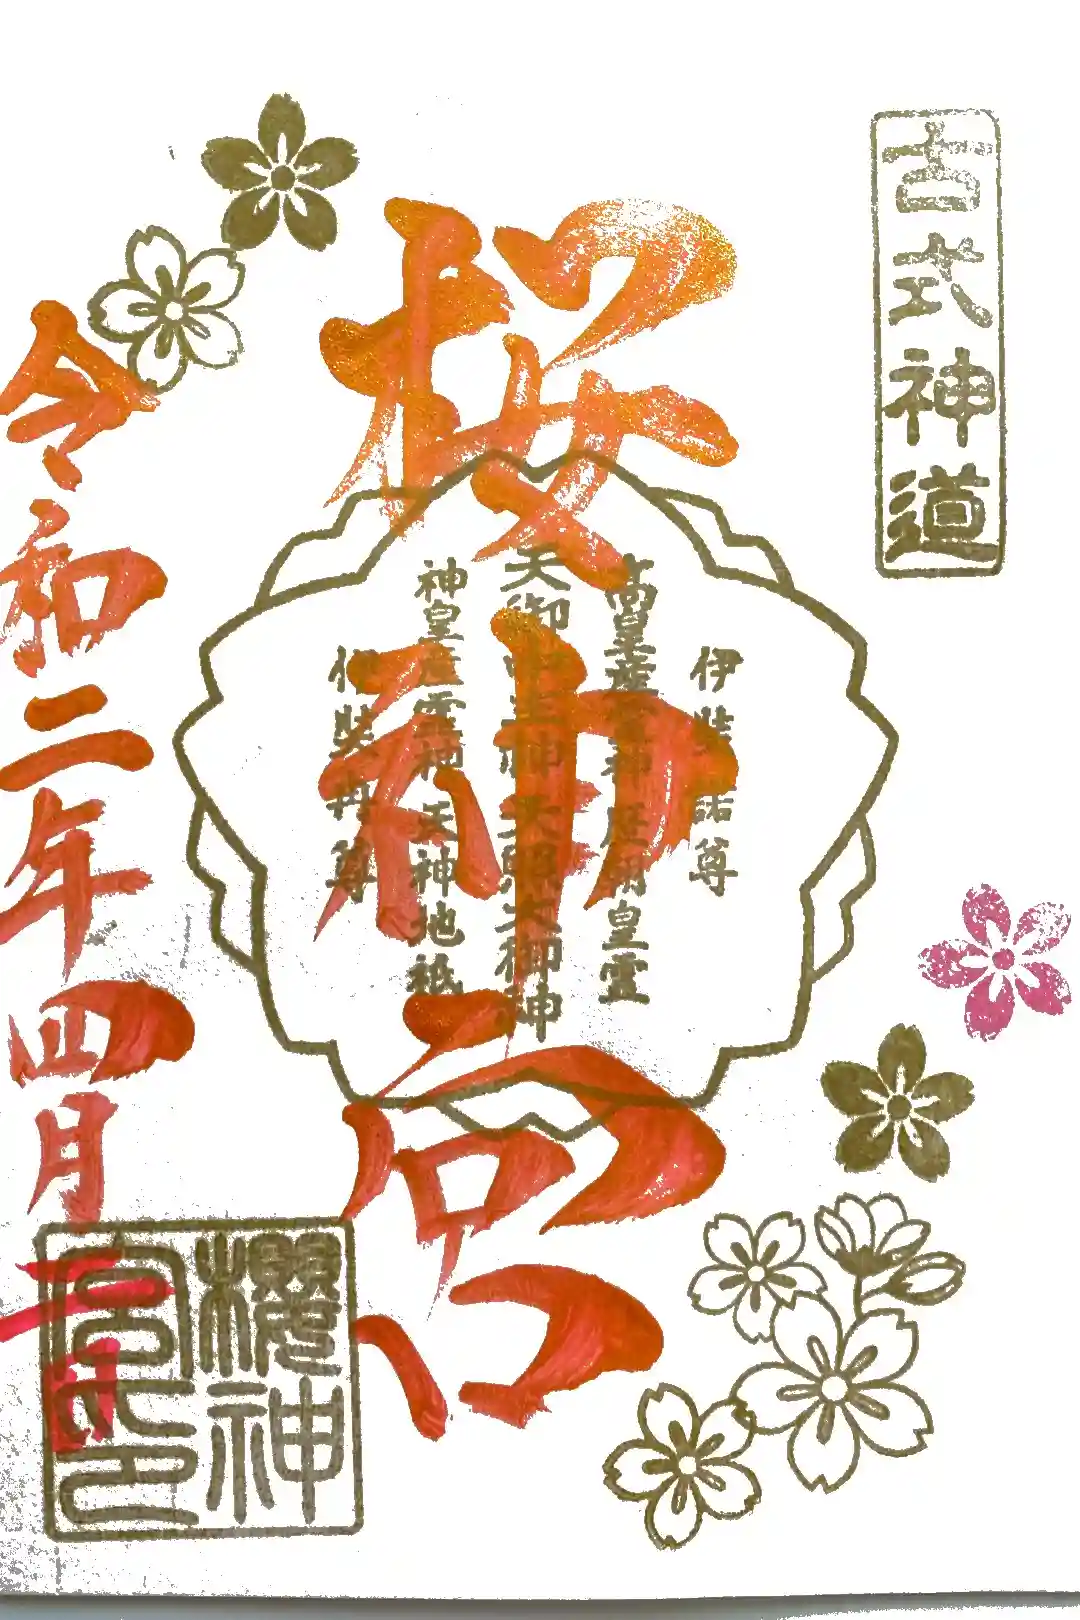 古式神道
桜神宮
伊弉諾尊
高皇産霊神 歴朝皇霊
天御中主神 天照大御神
神皇産霊神 天神地祇
伊弉冉尊
令和二年四月二日
櫻神宮印